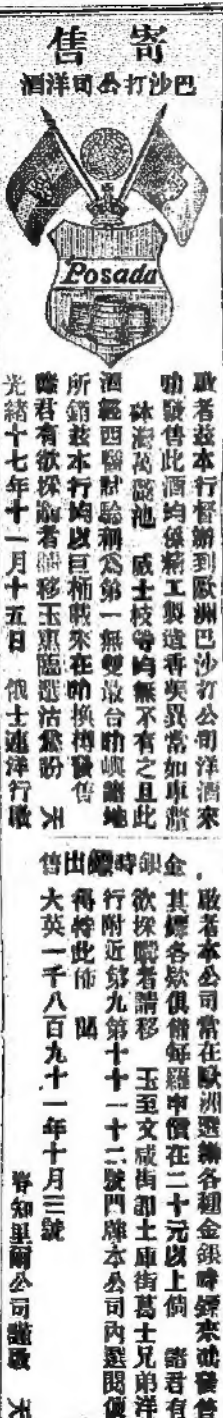 寄售
巴沙打公司洋酒
Posada
啟者茲本行督辦到歐洲巴沙打公司洋酒來
叻發售此酒均係精工製造香美異常如車厘
砵酒萬囒池 威士枝等均無不有之且此
酒經西醫試驗稱為第一無雙故合叻嶼諸地
所銷茲本行均以巨桶載來在叻換樽發售
諸君有欲採酒者請移玉惠臨選沽為盼 天
光緒十七年十一月十五日 士連洋行啟
金銀時鏢出售
啟者本公司常在歐洲選辦各種金銀時鏢來叻發售
其鏢各欵俱備每羅申價在二十元以上倘 諸君有
欲採購者請移 玉至文咸街即土庫街葛士兄弟洋
行附近第九第十十一十二號門牌本公司內選閱便
得特此佈 聞
大英一千八百九十一年十月三號
知里爾公司謹啟 天